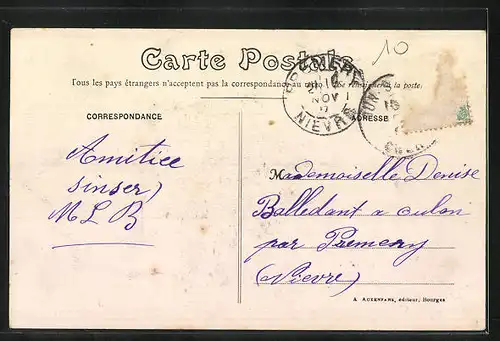 10
Carte Postale
Tous les pays étrangers n'acceptent pas la correspondance au recto. (Se renseigner à la poste)
PREMERY
NOV
NIEVRE
CORRESPONDANCE
ADRESSE
Amitiee
sinser
M L B
Mademoiselle Denise
Balledant a oulon
par Premery
(Nievre)
A. AUXENFANS, éditeur, Bourges